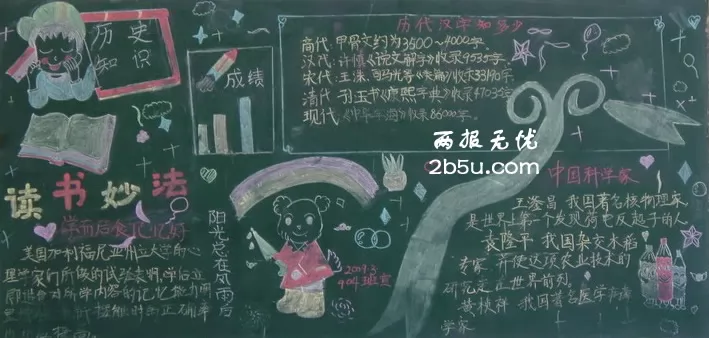 历史
知识
成绩
历代汉字知多少
商代:甲骨文约为3500~4000字.
汉代:许慎《说文解字》收录9353字.
宋代:王洙、司马光等《类篇》收
清代:
《康熙字典》收录
现代:《中华字海》收录85000字.
两报无忧
2b5u.com
读书妙法
学前后食记忆好
美国加利福尼亚州立大学的心
理学家们所做的试验表明,学后立
对所学内容的记忆能力
阳光总在风雨后
2009.3
404班宣
中国科学家
王淦昌 我国著名核物理家
是世界上第一个发现荷电反超子的人
袁隆平 我国杂交水稻
专家 并使这项农业技术的
研究走在世界前列.
黄桢祥 我国著名医学病毒
学家